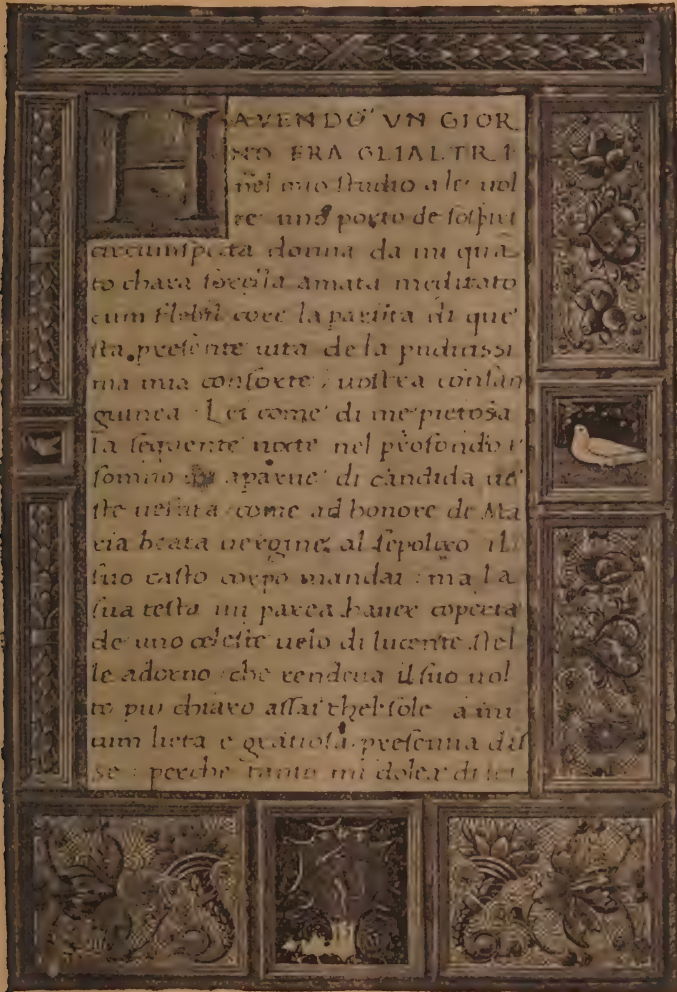 HAVENDO VN GIOR
NO FRA GLIALTRI
nel mio studio a le uol
te uno porto de sospiri
circumspecta donna da mi qua
to chara sorella amata meditato
cum flebil core la partita di que
sta presente uita de la pudicissi
ma mia consorte, uostra consan
guinea. Lei come di me pietosa
la sequente nocte nel profondo
somno aparue di candida ue
ste uestita come ad honore de Ma
ria beata uergine, al sepolcro il
suo casto corpo mandai: ma la
sua testa mi parea hauer coperta
de uno celeste uelo di lucente stel
le adorno che rendeua il suo uol
to piu chiaro assai chel sole a mi
cum lieta e gratiosa presentia dis
se: perche tanto mi dolea di lei